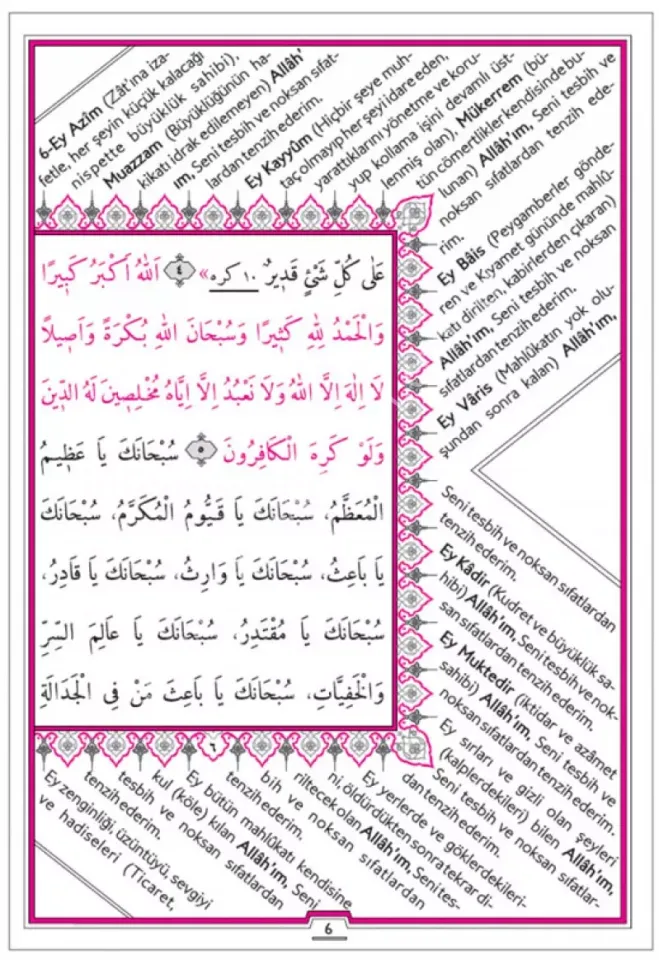 6-Ey Azîm (Zât'ına iza-
fetle, her şeyin küçük kalacağı
nispette büyüklük sahibi).
Muazzam (Büyüklüğünün ha-
kikati idrak edilemeyen) Allâh'
ım, Seni tesbih ve noksan sıfat-
lardan tenzih ederim.
Ey Kayyûm (Hiçbir şeye muh-
taç olmayıp her şeyi idare eden,
yarattıklarını yönetme ve koru-
yup kollama işini devamlı üst-
lenmiş olan), Mükerrem (bü-
tün cömertlikler kendisinde bu-
lunan) Allâh'ım, Seni tesbih ve
noksan sıfatlardan tenzih ede-
rim.
Ey Bâis (Peygamberler gönde-
ren ve Kıyamet gününde mahlû-
katı dirilten, kabirlerden çıkaran)
Allâh'ım, Seni tesbih ve noksan
sıfatlardan tenzih ederim.
Ey Vâris (Mahlûkatın yok olu-
şundan sonra kalan) Allâh'ım,
عَلٰى كُلِّ شَيْئٍ قَد۪يرٌ ١٠ كره» ٤ اَللهُ اَكْبَرُ كَب۪يرًا
وَالْحَمْدُ لِلّٰهِ كَث۪يرًا وَسُبْحَانَ اللهِ بُكْرَةً وَاَص۪يلًا
لَا اِلٰهَ اِلَّا اللهُ وَلَا نَعْبُدُ اِلَّا اِيَّاهُ مُخْلِص۪ينَ لَهُ الدّ۪ينَ
وَلَوْ كَرِهَ الْكَافِرُونَ ٥ سُبْحَانَكَ يَا عَظ۪يمُ
الْمُعَظَّمُ، سُبْحَانَكَ يَا قَيُّومُ الْمُكَرَّمُ، سُبْحَانَكَ
يَا بَاعِثُ، سُبْحَانَكَ يَا وَارِثُ، سُبْحَانَكَ يَا قَادِرُ،
سُبْحَانَكَ يَا مُقْتَدِرُ، سُبْحَانَكَ يَا عَالِمَ السِّرِّ
وَالْخَفِيَّاتِ، سُبْحَانَكَ يَا بَاعِثَ مَنْ فِي الْجَدَالَةِ
٦
Seni tesbih ve noksan sıfatlardan
tenzih ederim.
Ey Kâdir (Kudret ve büyüklük sa-
hibi) Allâh'ım, Seni tesbih ve nok-
san sıfatlardan tenzih ederim.
Ey Muktedir (iktidar ve azâmet
sahibi) Allâh'ım, Seni tesbih ve
noksan sıfatlardan tenzih ederim.
Ey sırları ve gizli olan şeyleri
(kalplerdekileri) bilen Allâh'ım,
Seni tesbih ve noksan sıfatlar-
dan tenzih ederim.
Ey yerlerde ve göklerdekileri-
ni, öldürdükten sonra tekrar di-
riltecek olan Allâh'ım, Seni tes-
bih ve noksan sıfatlardan
tenzih ederim.
Ey bütün mahlûkatı kendisine
kul (köle) kılan Allâh'ım, Seni
tesbih ve noksan sıfatlardan
tenzih ederim.
Ey zenginliği, üzüntüyü, sevgiyi
ve hadiseleri (Ticaret,
6